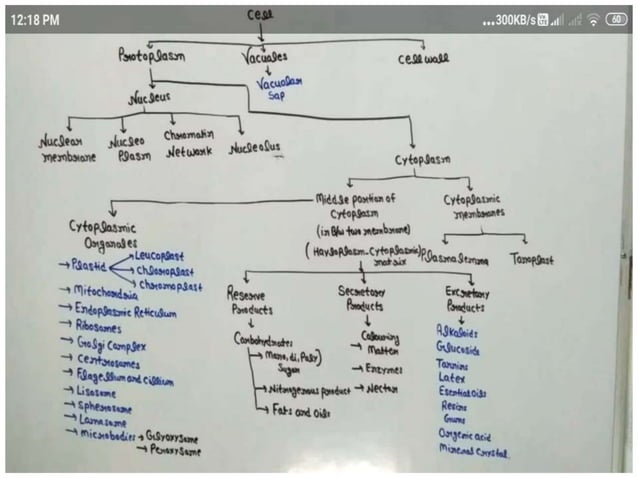 12:18 PM
...300KB/s 60
Cell
Protoplasm Vacuoles Cell wall
Vacuolar
Sap
Nucleus
Nuclear
membrane
Nucleo
Plasm
Chromatin
Network
Nucleolus
Cytoplasm
Middle portion of
Cytoplasm
(in b/w two membrane)
(Hayloplasm-Cytoplasmic)
matrix
Cytoplasmic
membranes
Plasmalemma
Tonoplast
Cytoplasmic
Organales
→ Plastid
Leucoplast
Chloroplast
Chromoplast
→ Mitochondria
→ Endoplasmic Reticulum
→ Ribosomes
→ Golgi Complex
→ Centrosomes
→ Flagellium and Cillium
→ Lisosome
→ Spherosome
→ Lamasome
→ microbodies → Glyoxysome
→ Peroxysome
Reserve
Products
Carbohydrates
→ Mono, di, Poly)
Sugar
→ Nitrogenous product
→ Fats and oils
Secretory
Products
Colouring
→ Matter
→ Enzymes
→ Nectar
Excretory
Products
Alkaloids
Glucoside
Tannins
Latex
Esential oils
Resins
Gums
Organic acid
Mineral Crystal.